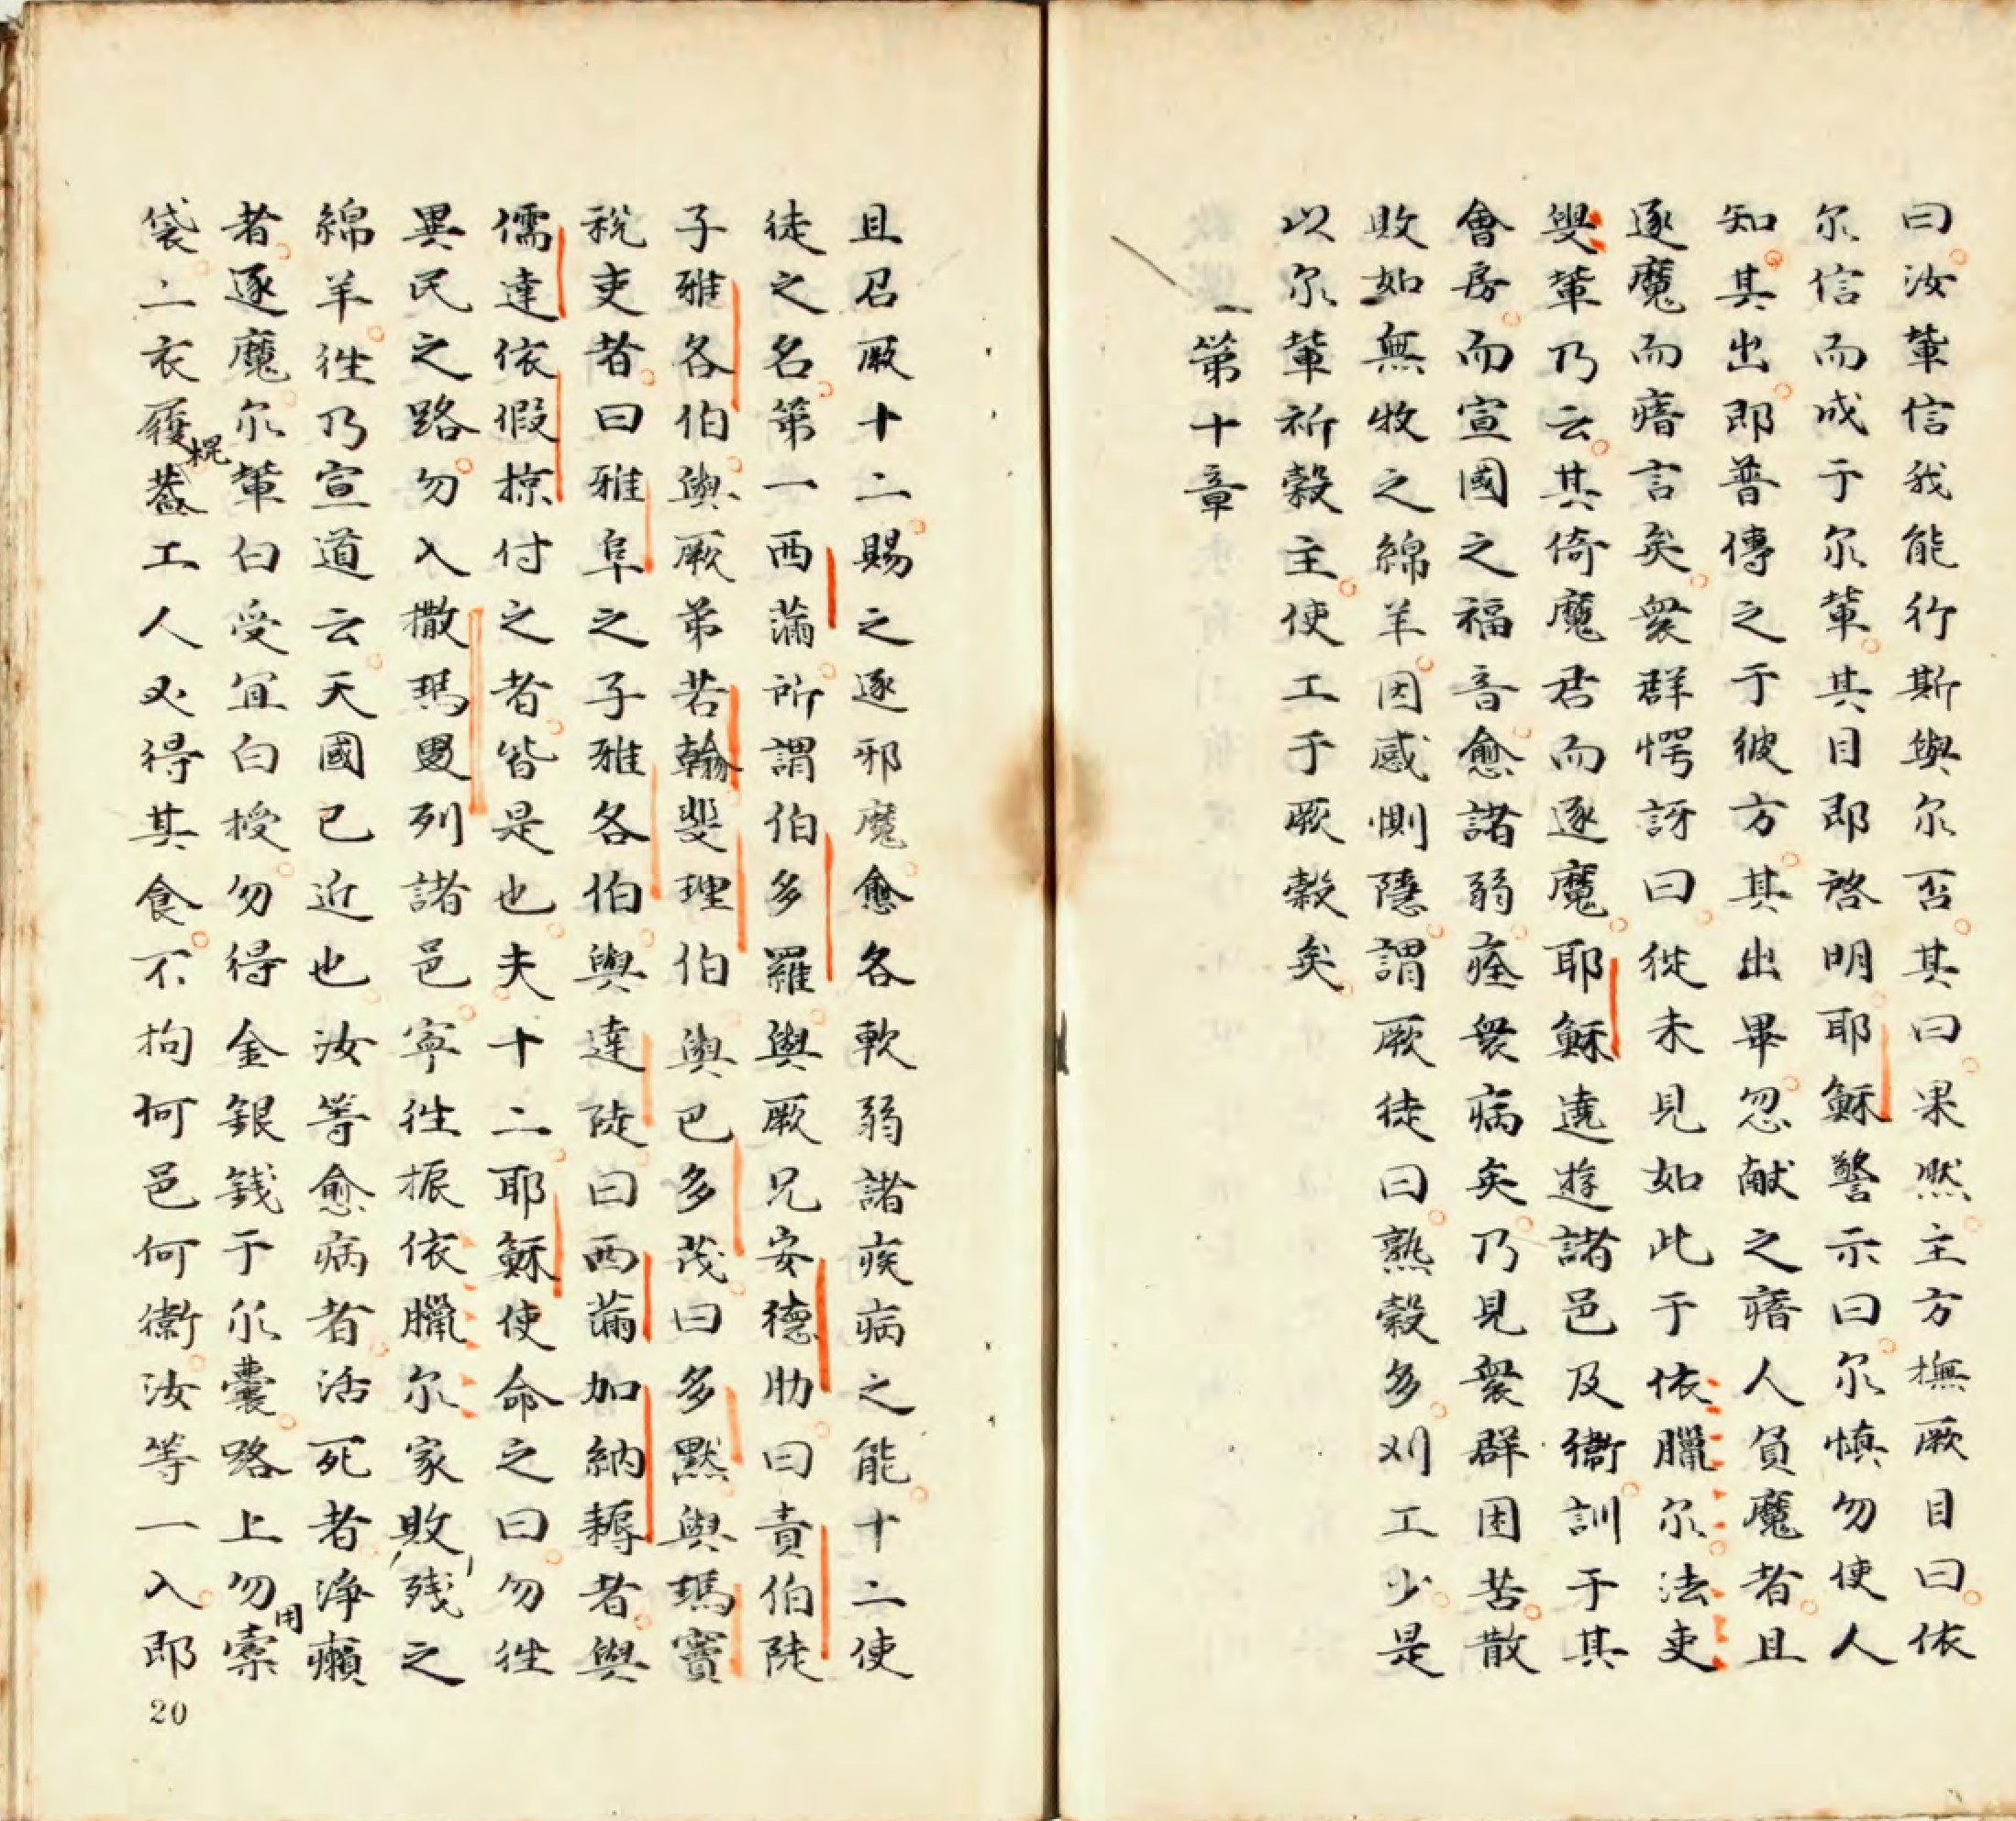 曰汝輩信我能行斯與尔否其曰果然主方撫厥目曰依
尔信而成于尔輩其目即啓明耶穌警示曰尔慎勿使人
知其出即普傳之于彼方其出畢忽献之瘖人負魔者且
逐魔而瘖言矣衆群愕訝曰從未見如此于依臘尔法吏
輩乃云其倚魔君而逐魔耶穌遶遊諸邑及衞訓于其
會房而宣國之福音愈諸弱痊衆病矣乃見衆群困苦散
敗如無牧之綿羊因感惻隱謂厥徒曰熟穀多刈工少是
以尔輩祈穀主使工于厥穀矣
第十章
且召厥十二賜之逐邪魔愈各軟弱諸疾病之能十二使
徒之名第一西蒲所謂伯多羅與厥兄安德肋曰責伯陡
子雅各伯與厥弟若翰斐理伯與巴多茂曰多黙與瑪竇
稅吏者曰雅阜之子雅各伯與達陡曰西蒲加納耨者與
儒達依假掠付之者皆是也夫十二耶穌使命之曰勿徃
異民之路勿入撒瑪列諸邑寧徃振依臘尔家敗残之
綿羊徃乃宣道云天國已近也汝等愈病者活死者淨癩
者逐魔尔輩白受宜白授勿得金銀銭于尔囊路上勿用索
袋二衣履棍葢工人必得其食不拘何邑何衞汝等一入即
20